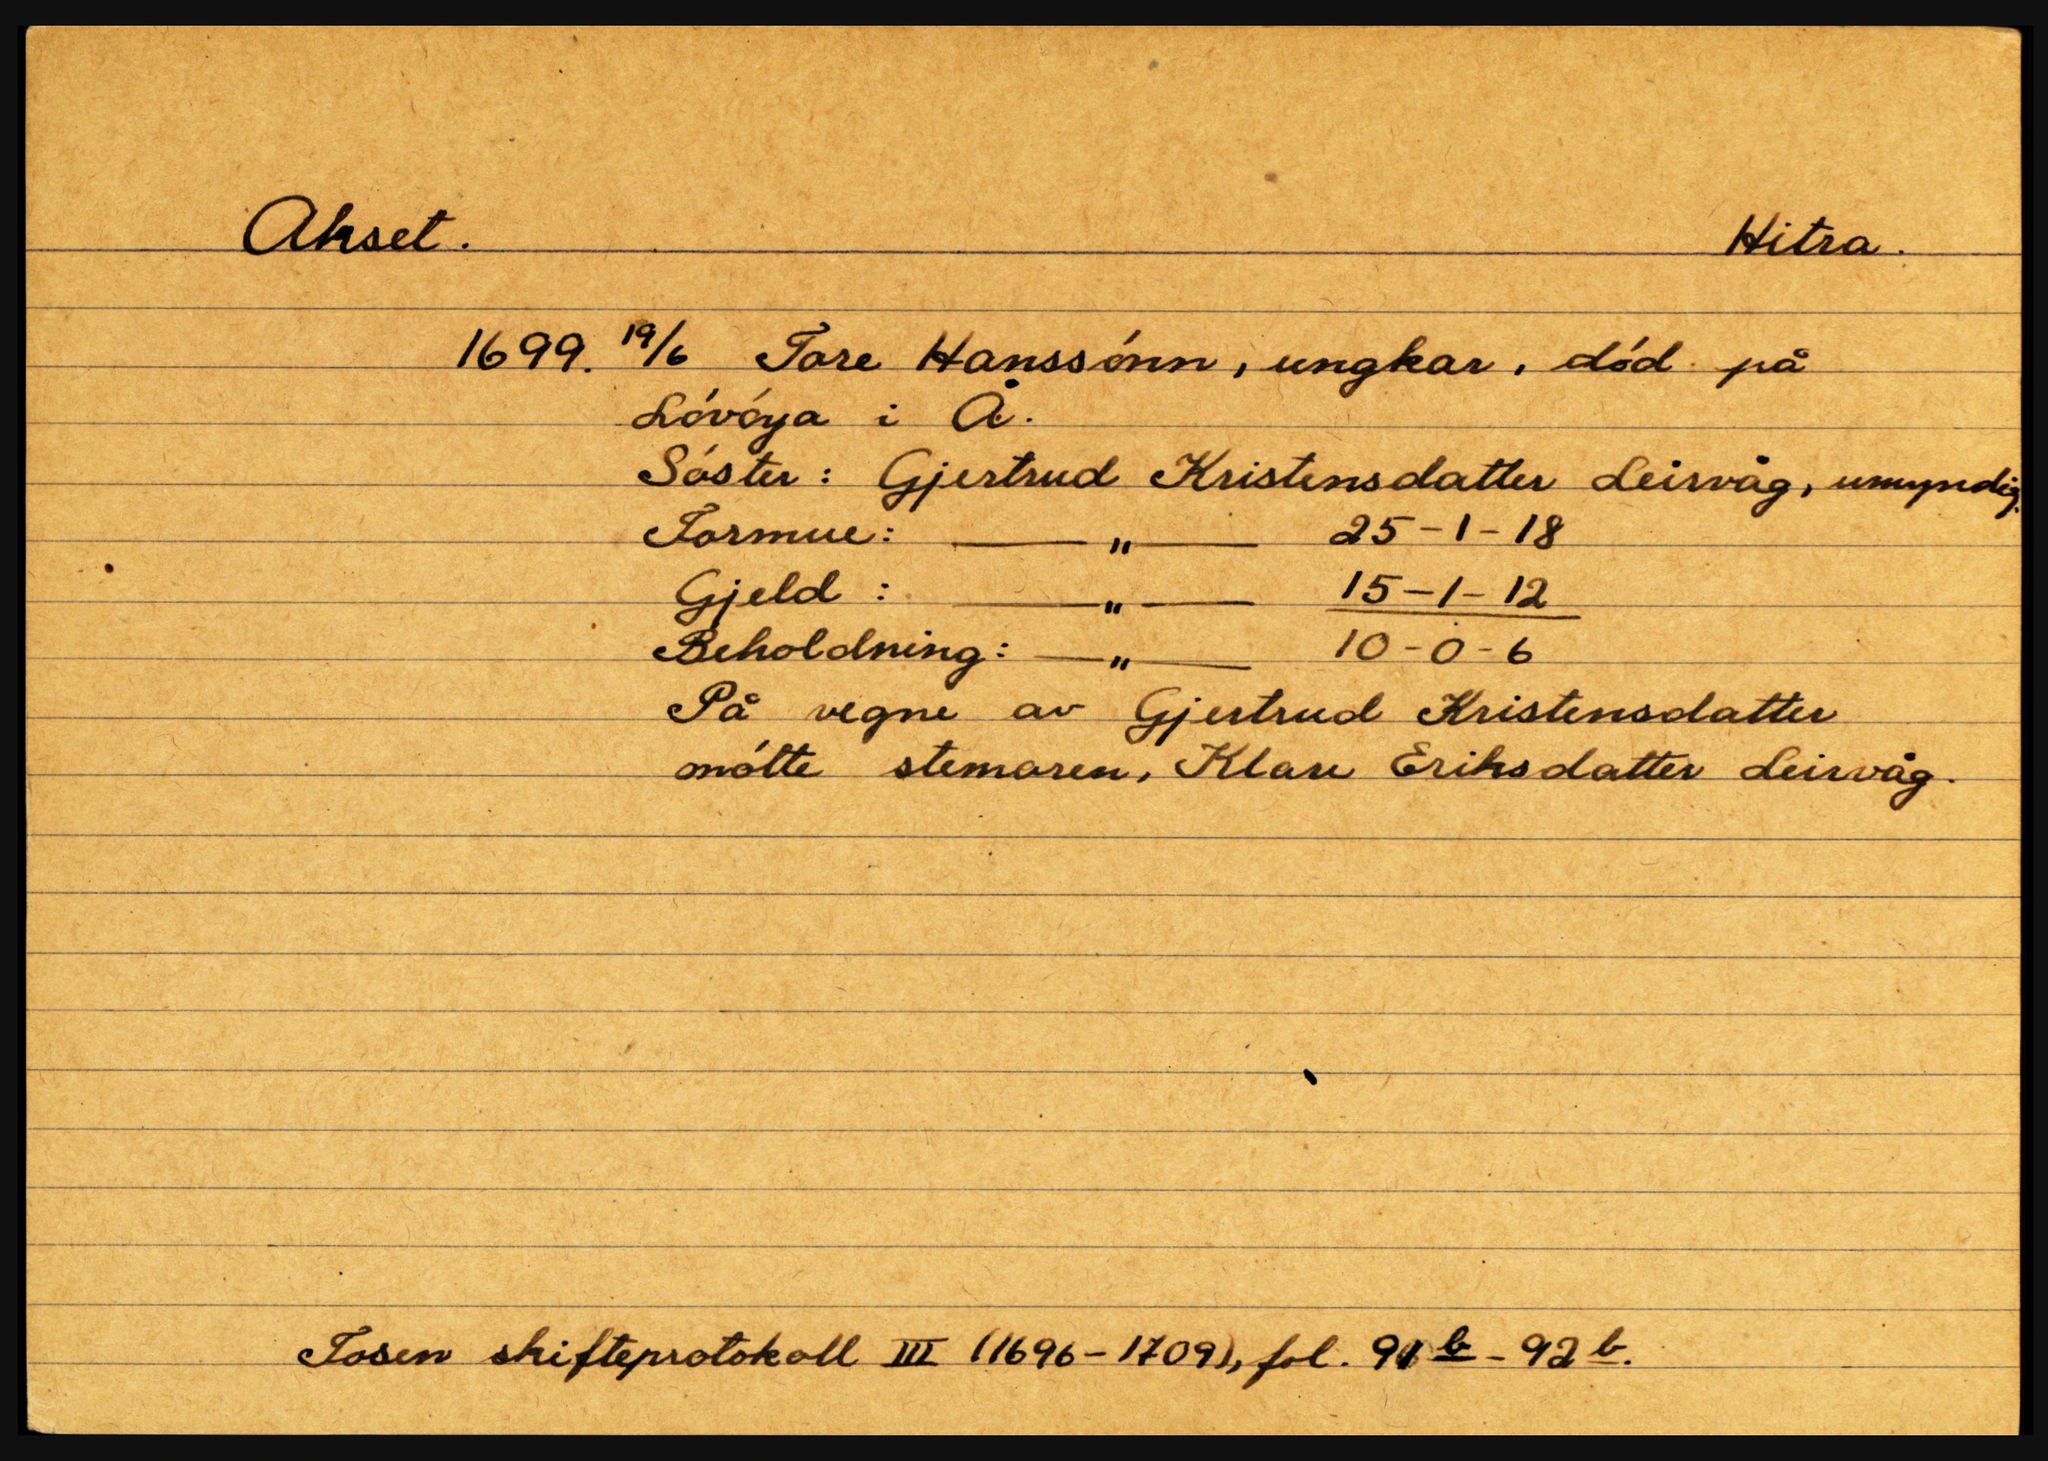 Akset. Hitra.
1699. 19/6 Tore Hanssónn, ungkar, død på
Lóvóya i Å.
Sóster: Gjertrud Kristensdatter Leirvåg, umyndig.
Formue: — " — 25-1-18
Gjeld : — " — 15-1-12
Beholdning: — " — 10-0-6
På vegne av Gjertrud Kristensdatter
mótte stemoren, Klare Eriksdatter Leirvåg.
Fosen skifteprotokoll III (1696-1709), fol. 91b - 92b.